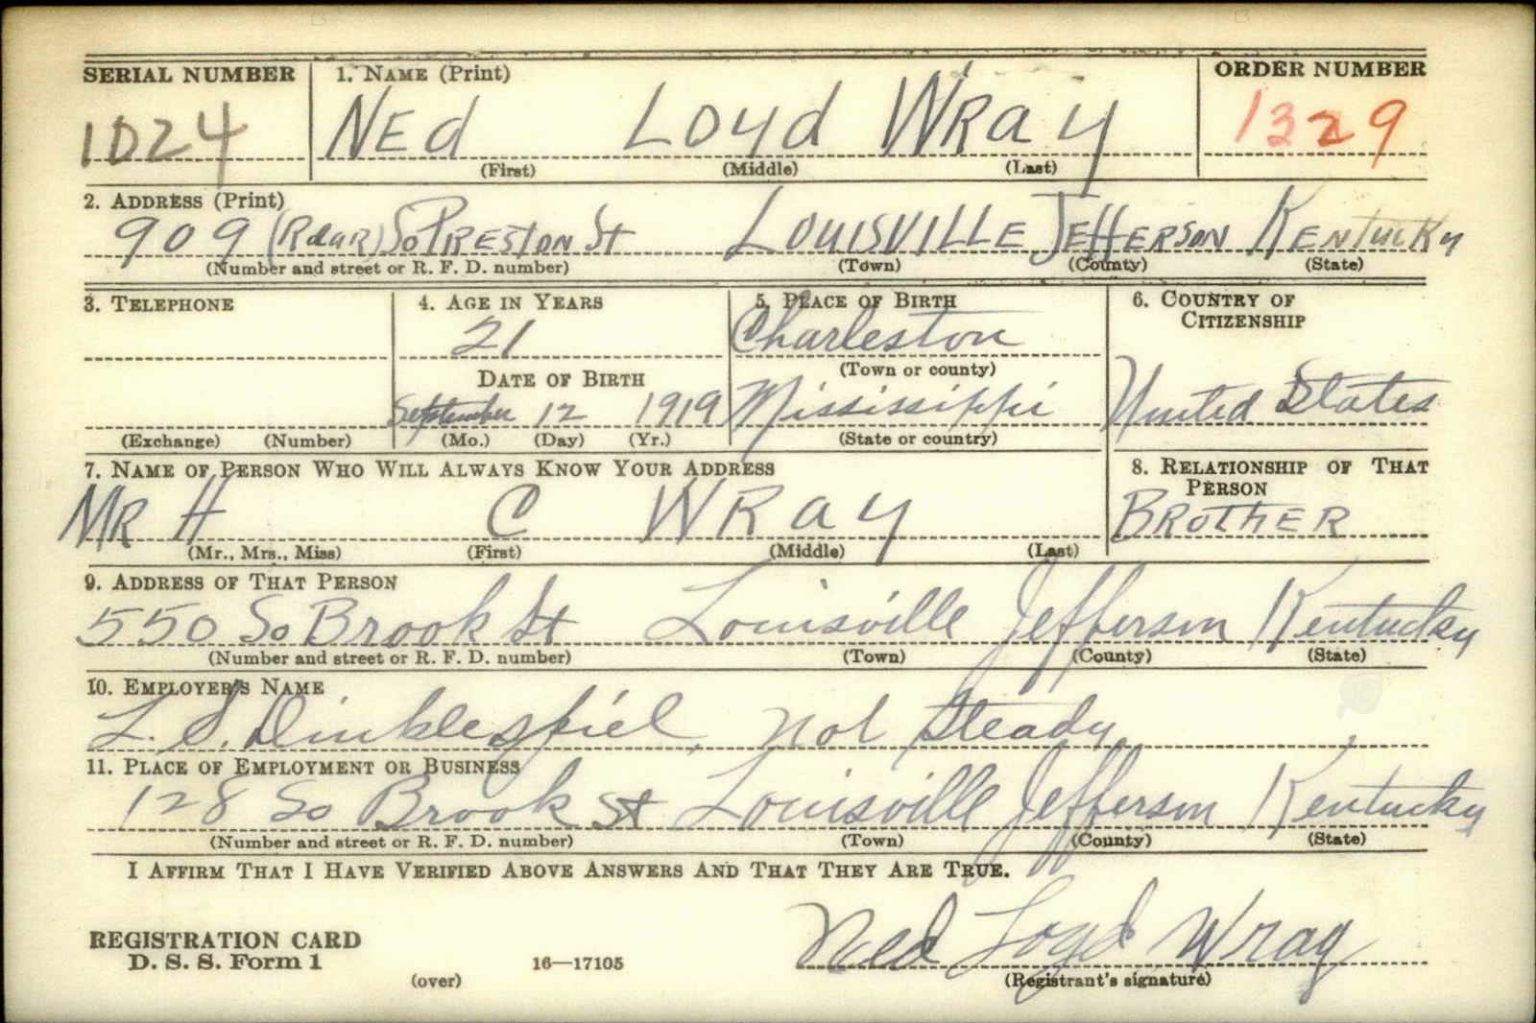 SERIAL NUMBER 1. NAME (Print) ORDER NUMBER
1024 NEd LOyd WRay 1329
(First) (Middle) (Last)
2. ADDRESS (Print)
909 (ReaR) So PRESTON St LOUISVILLE JEFFERSON KENTUCKy
(Number and street or R. F. D. number) (Town) (County) (State)
3. TELEPHONE 4. AGE IN YEARS 5. PLACE OF BIRTH 6. COUNTRY OF
CITIZENSHIP
21 Charleston
(Town or county)
DATE OF BIRTH
September 12 1919 Mississippi United States
(Exchange) (Number) (Mo.) (Day) (Yr.) (State or country)
7. NAME OF PERSON WHO WILL ALWAYS KNOW YOUR ADDRESS 8. RELATIONSHIP OF THAT
PERSON
MR H C WRay BROTHER
(Mr., Mrs., Miss) (First) (Middle) (Last)
9. ADDRESS OF THAT PERSON
550 So Brook St Louisville Jefferson Kentucky
(Number and street or R. F. D. number) (Town) (County) (State)
10. EMPLOYER'S NAME
L. S. Dinklespiel, not steady
11. PLACE OF EMPLOYMENT OR BUSINESS
128 So Brook St Louisville Jefferson Kentucky
(Number and street or R. F. D. number) (Town) (County) (State)
I AFFIRM THAT I HAVE VERIFIED ABOVE ANSWERS AND THAT THEY ARE TRUE.
REGISTRATION CARD
D. S. S. Form 1 16—17105 Ned Loyd Wray
(over) (Registrant's signature)